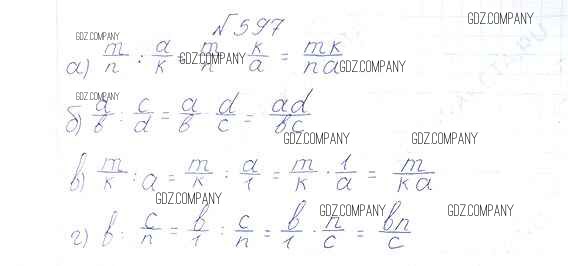 GDZ.COMPANY
№597
GDZ.COMPANY
а) m/n : a/k = m/n GDZ.COMPANY k/a = mk/na GDZ.COMPANY
GDZ.COMPANY
б) a/b : c/d = a/b · d/c = ad/bc
GDZ.COMPANY GDZ.COMPANY
в) m/k : a = m/k : a/1 = m/k · 1/a = m/ka
GDZ.COMPANY GDZ.COMPANY GDZ.COMPANY
г) b : c/n = b/1 : c/n = b/1 · n/c = bn/c